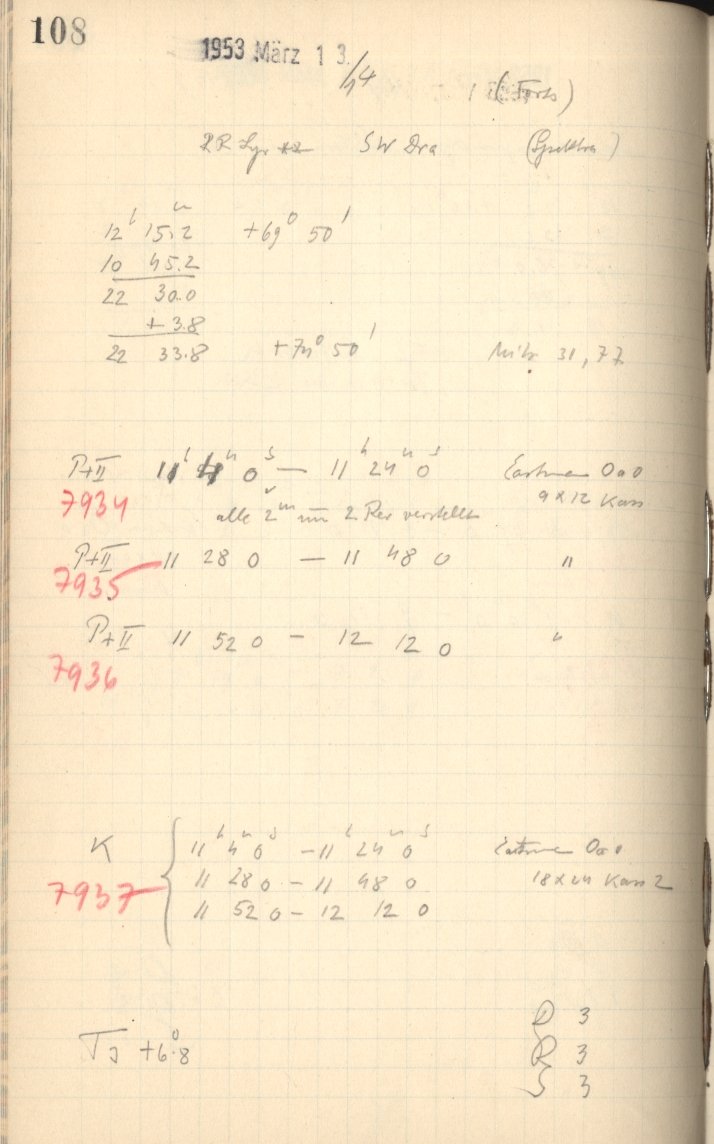 108
1953 März 13/14
(Forts)
RR Lyr SW Dra (Spektra)
12ʰ 15.2ᵐ +69° 50'
10 45.2
22 30.0
+ 3.8
22 33.8 +74° 50' 31,77
P+II 11ʰ 4ᵐ 0ˢ — 11ʰ 24ᵐ 0ˢ Eastman OaO
7934 9x12 Kass
alle 2ᵐ um 2 Rev verstellt
P+II 11 28 0 — 11 48 0 "
7935
P+II 11 52 0 — 12 12 0 "
7936
K 11ʰ 4ᵐ 0ˢ — 11ʰ 24ᵐ 0ˢ Eastman OaO
7937 11 28 0 — 11 48 0 18x24 Kass 2
11 52 0 — 12 12 0
D 3
TJ +6°.8 R 3
S 3